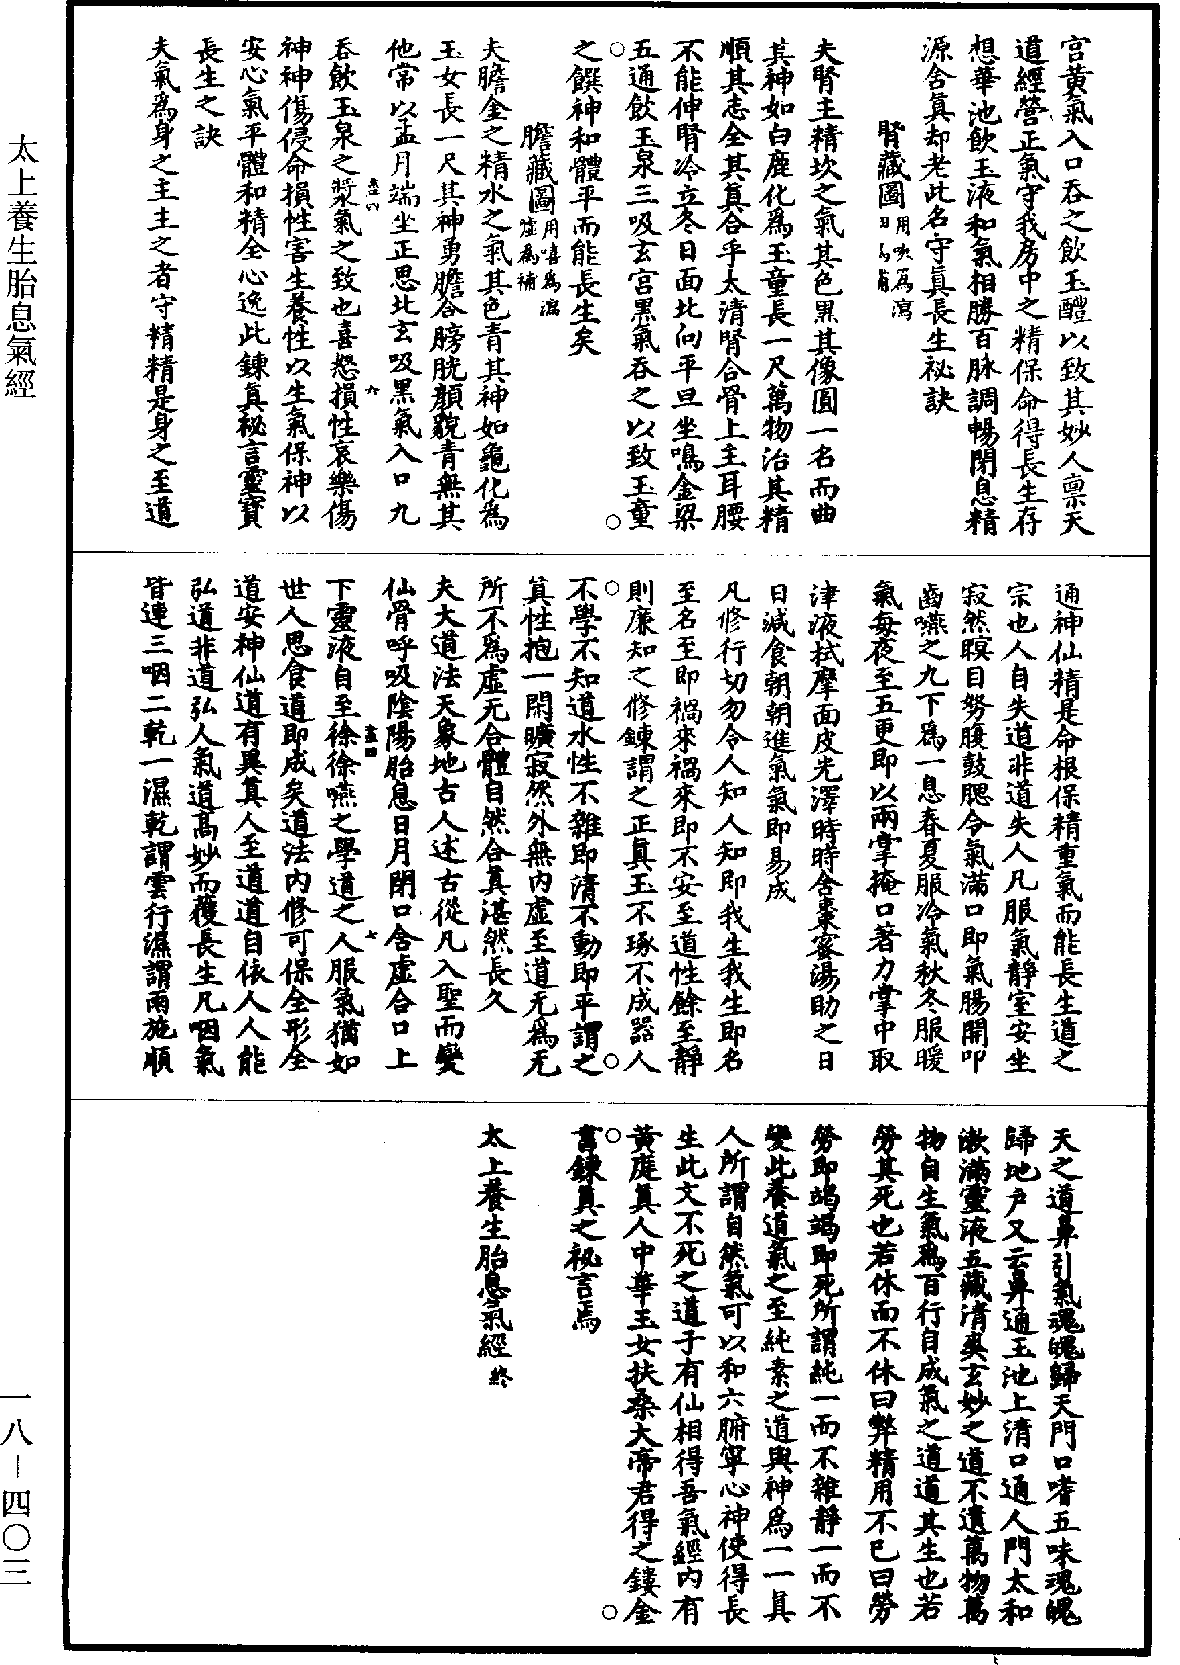 宮黃氣入口吞之飲玉醴以致其妙人稟天
道經營正氣守我房中之精保命得長生存
想華池飲玉液和氣相勝百脉調暢閉息精
源含真却老此名守真長生祕訣
腎藏圖用吹爲瀉
夫腎主精坎之氣其色黑其像圓一名而曲
其神如白鹿化爲玉童長一尺萬物治其精
順其志全其真合乎太清腎合骨上主耳腰
不能伸腎冷立冬日面北向平旦坐鳴金梁
五通飲玉泉三吸玄宮黑氣吞之以致玉童
之饌神和體平而能長生矣
膽藏圖用嘻爲瀉噓爲補
夫膽金之精水之氣其色青其神如龜化爲
玉女長一尺其神勇膽合膀胱顏貌青無其
他常以孟月端坐正思北玄吸黑氣入口九
吞飲玉泉之漿氣之致也喜怒損性哀樂傷
神神傷侵命損性害生養性以生氣保神以
安心氣平體和精全心逸此鍊真祕言靈寶
長生之訣
夫氣爲身之主主之者守精精是身之至道
通神仙精是命根保精重氣而能長生道之
宗也人自失道非道失人凡服氣靜室安坐
寂然瞑目努腹鼓腮令氣滿口即氣腸開叩
齒嚥之九下爲一息春夏服冷氣秋冬服暖
氣每夜至五更即以兩掌掩口著力掌中取
津液拭摩面皮光澤時時含棗蜜湯助之日
日減食朝朝進氣氣即易成
凡修行切勿令人知人知即我生我生即名
至名至即禍來禍來即不安至道性餘至靜
則廉知之修鍊謂之正真玉不琢不成器人
不學不知道水性不雜即清不動即平謂之
真性抱一閑曠寂然外無內虛至道无爲无
所不爲虛无合體自然合真湛然長久
夫大道法天象地古人述古從凡入聖而變
仙骨呼吸陰陽胎息日月閉口含虛合口上
下靈液自至徐徐嚥之學道之人服氣猶如
世人思食道即成矣道法內修可保全形全
道安神仙道有異真人至道道自依人人能
弘道非道弘人氣道高妙而獲長生凡咽氣
皆連三咽二乾一濕乾謂雲行濕謂雨施順
天之道鼻引氣魂魄歸天門口嗜五味魂魄
歸地戶又云鼻通玉池上清口通人門太和
漱滿靈液五藏清爽玄妙之道不遺萬物萬
物自生氣爲百行自成氣之道道其生也若
勞其死也若休而不休曰弊精用不已曰勞
勞即竭竭即死所謂純一而不雜靜一而不
變此養道氣之至純素之道與神爲一一真
人所謂自然氣可以和六腑寧心神使得長
生此文不死之道于有仙相得吾氣經內有
黃庭真人中華玉女扶桑大帝君得之鏤金
書鍊真之祕言焉
太上養生胎息氣經終
太上養生胎息氣經
一八－四〇三